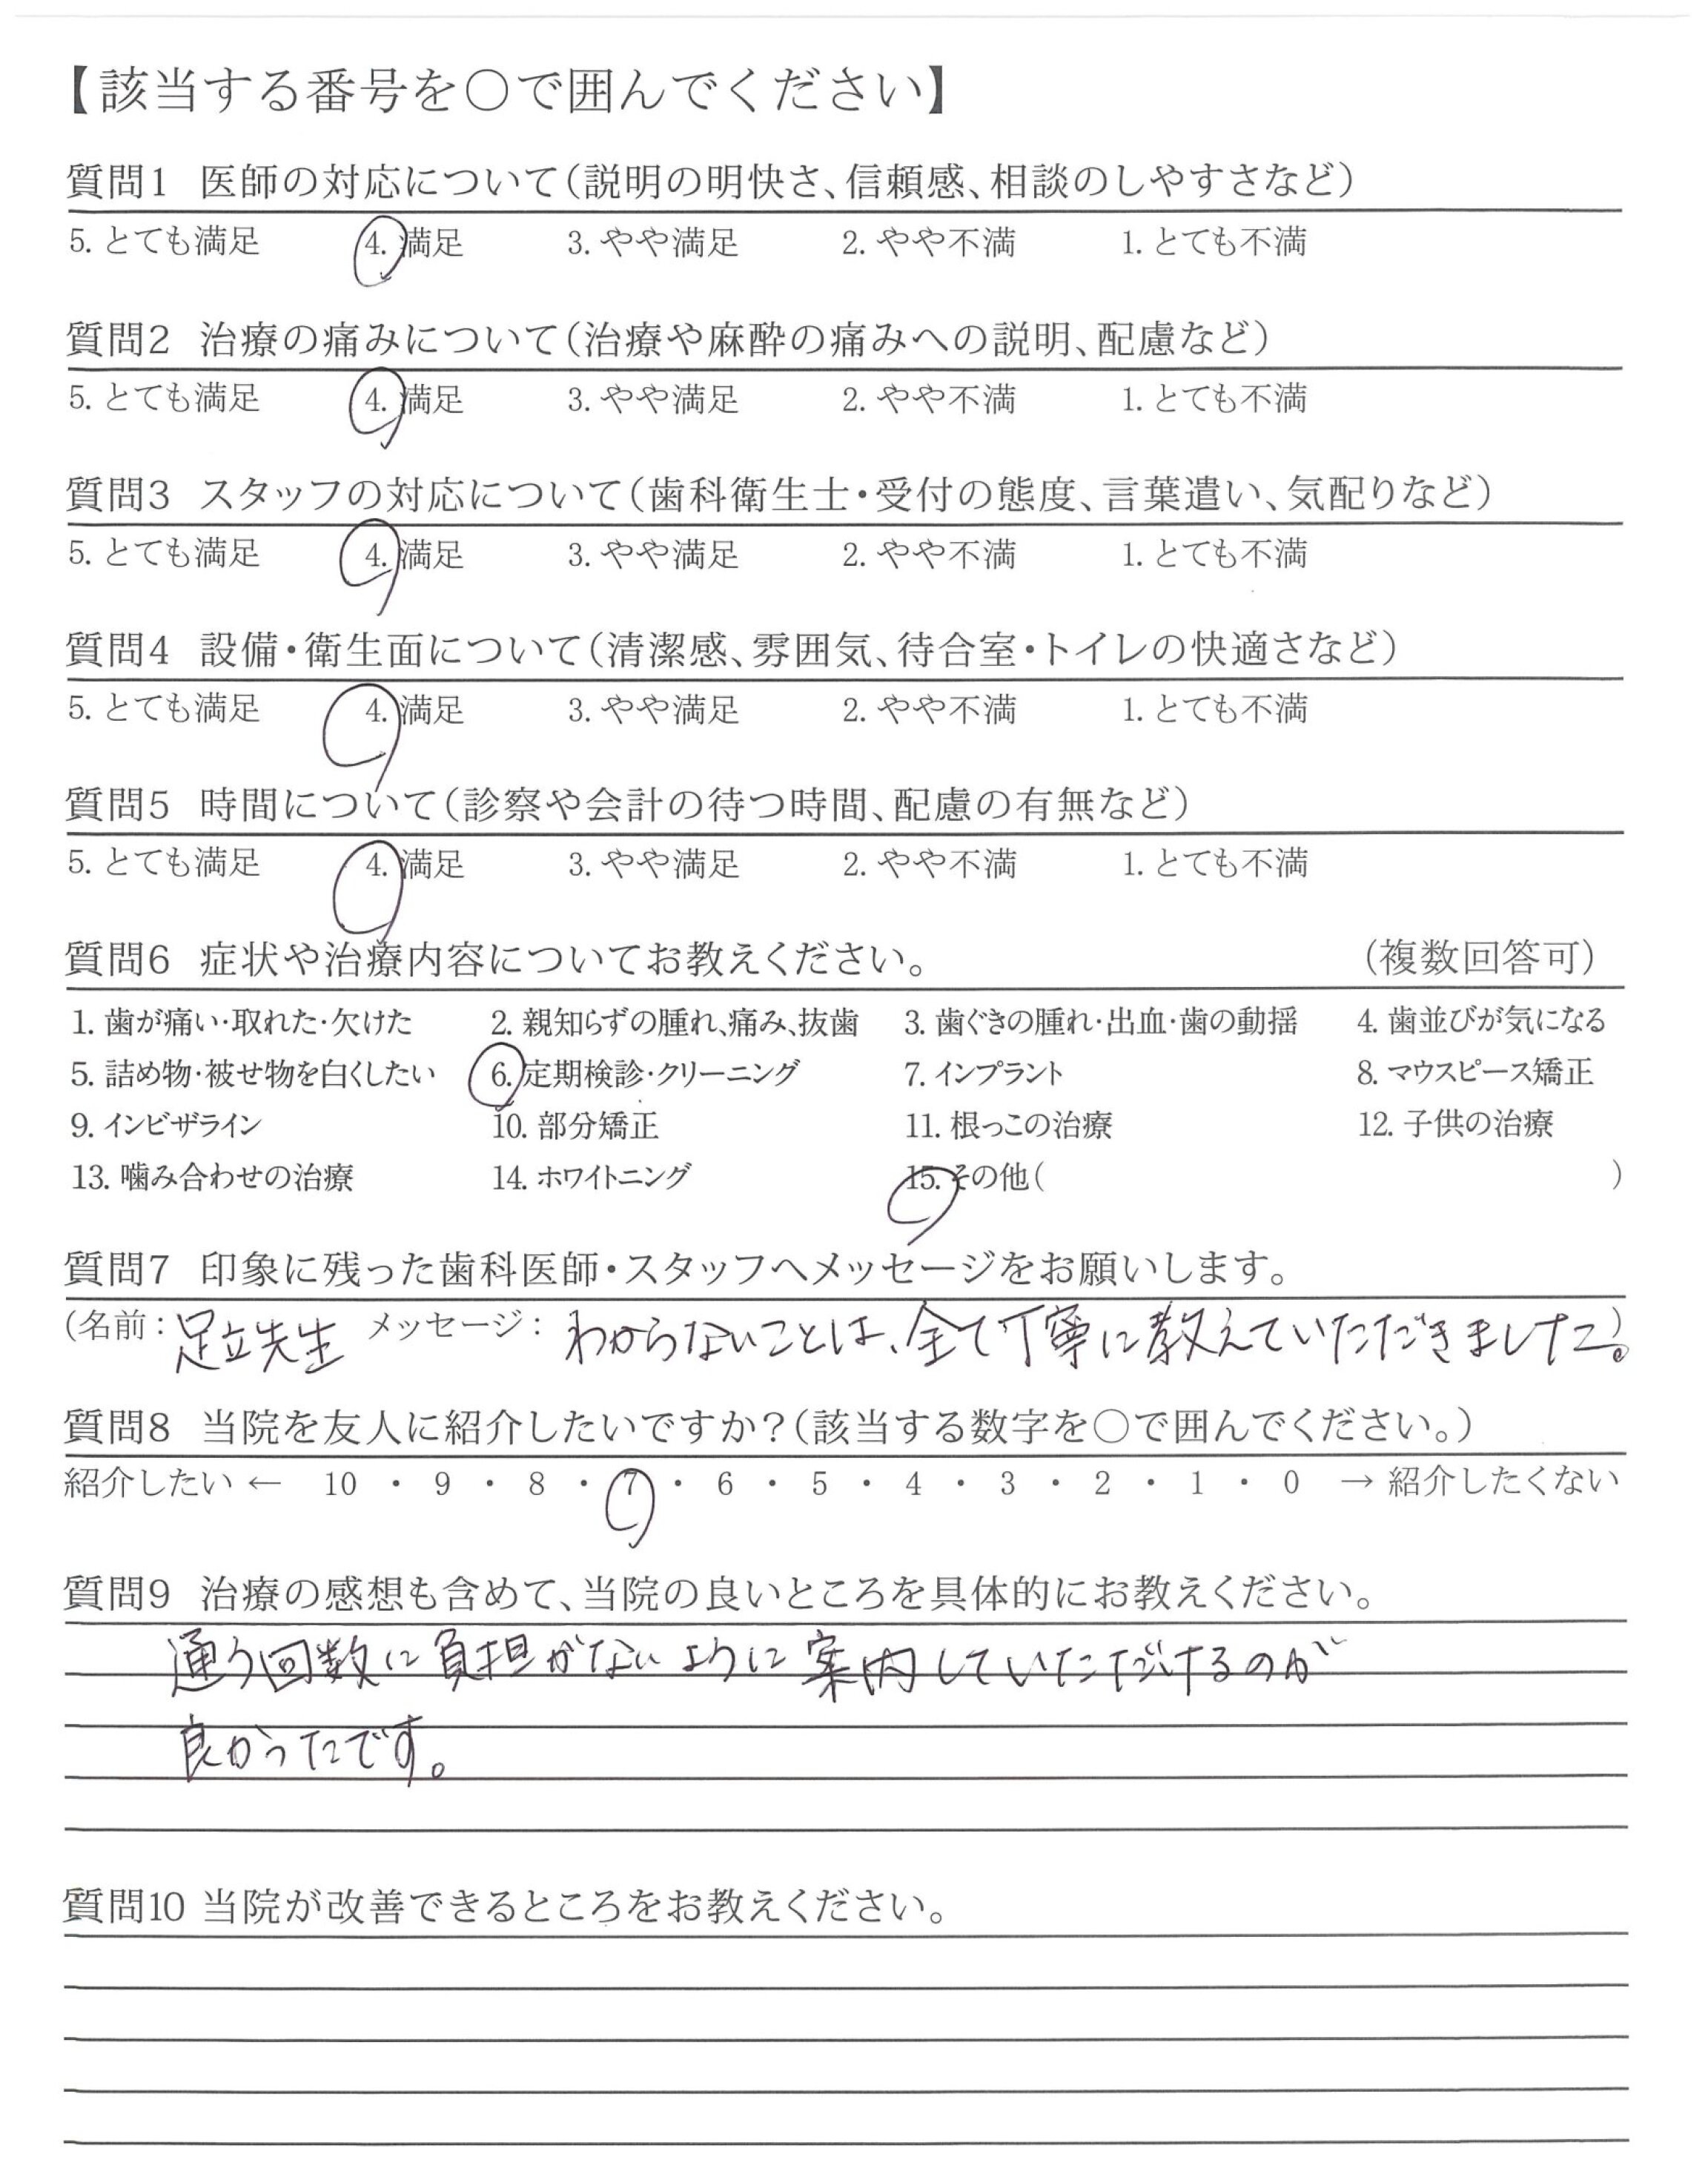 【該当する番号を○で囲んでください】
質問1 医師の対応について(説明の明快さ、信頼感、相談のしやすさなど)
5. とても満足 4. 満足 3. やや満足 2. やや不満 1. とても不満
質問2 治療の痛みについて(治療や麻酔の痛みへの説明、配慮など)
5. とても満足 4. 満足 3. やや満足 2. やや不満 1. とても不満
質問3 スタッフの対応について(歯科衛生士・受付の態度、言葉遣い、気配りなど)
5. とても満足 4. 満足 3. やや満足 2. やや不満 1. とても不満
質問4 設備・衛生面について(清潔感、雰囲気、待合室・トイレの快適さなど)
5. とても満足 4. 満足 3. やや満足 2. やや不満 1. とても不満
質問5 時間について(診察や会計の待つ時間、配慮の有無など)
5. とても満足 4. 満足 3. やや満足 2. やや不満 1. とても不満
質問6 症状や治療内容についてお教えください。 (複数回答可)
1. 歯が痛い・取れた・欠けた 2. 親知らずの腫れ、痛み、抜歯 3. 歯ぐきの腫れ・出血・歯の動揺 4. 歯並びが気になる
5. 詰め物・被せ物を白くしたい 6. 定期検診・クリーニング 7. インプラント 8. マウスピース矯正
9. インビザライン 10. 部分矯正 11. 根っこの治療 12. 子供の治療
13. 噛み合わせの治療 14. ホワイトニング 15. その他( )
質問7 印象に残った歯科医師・スタッフへメッセージをお願いします。
(名前：足立先生 メッセージ：わからないことは、全て丁寧に教えていただきました。)
質問8 当院を友人に紹介したいですか？(該当する数字を○で囲んでください。)
紹介したい ← 10 ・ 9 ・ 8 ・ 7 ・ 6 ・ 5 ・ 4 ・ 3 ・ 2 ・ 1 ・ 0 → 紹介したくない
質問9 治療の感想も含めて、当院の良いところを具体的にお教えください。
通う回数に負担がないように案内していただけるのが
良かったです。
質問10 当院が改善できるところをお教えください。